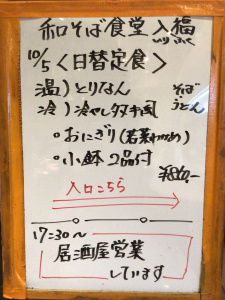 和そば食堂 入福
いりふく
10/5 〈日替定食〉
温)とりなん
冷)冷やし
そば
うどん
○おにぎり(若菜わかめ)
○小鉢 2品付
入口こちら
17:30〜
居酒屋営業
しています